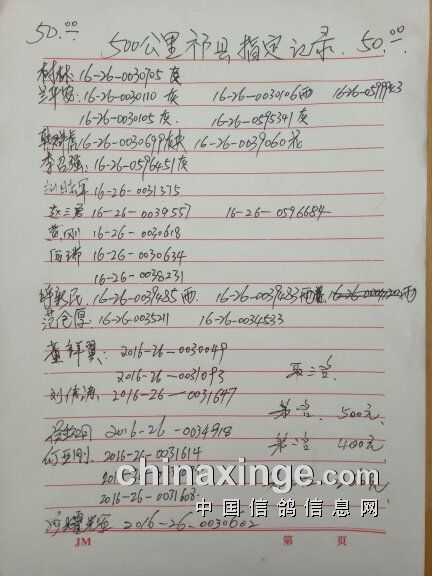 50.00 500公里祁县指定记录. 50.00
树林 16-26-0030705 灰
兰华宏: 16-26-0030110 灰 16-26-0030106 雨 16-26-0599943
16-26-0030105 灰 16-26-0595341 灰
16-26-0030699 16-26-0039060 花
李召强: 16-26-0596451 灰
16-26-0031375
赵三君 16-26-0039557 16-26-0596684
黄刚 16-26-0030618
16-26-0030634
16-26-0038231
16-26-0039485 雨 16-26-0039483 雨
范仓厚: 16-26-0035211 16-26-0034533
董祥翼: 2016-26-0030049
2016-26-0031093 取三名.
刘伟涛: 2016-26-0031647
第一名. 500元.
2016-26-0034918
第二名. 400元.
何亚刚: 2016-26-0031614
2016-26-0031608
2016-26-0030602
chinaxinge.com
中国信鸽信息网
JM 第 页